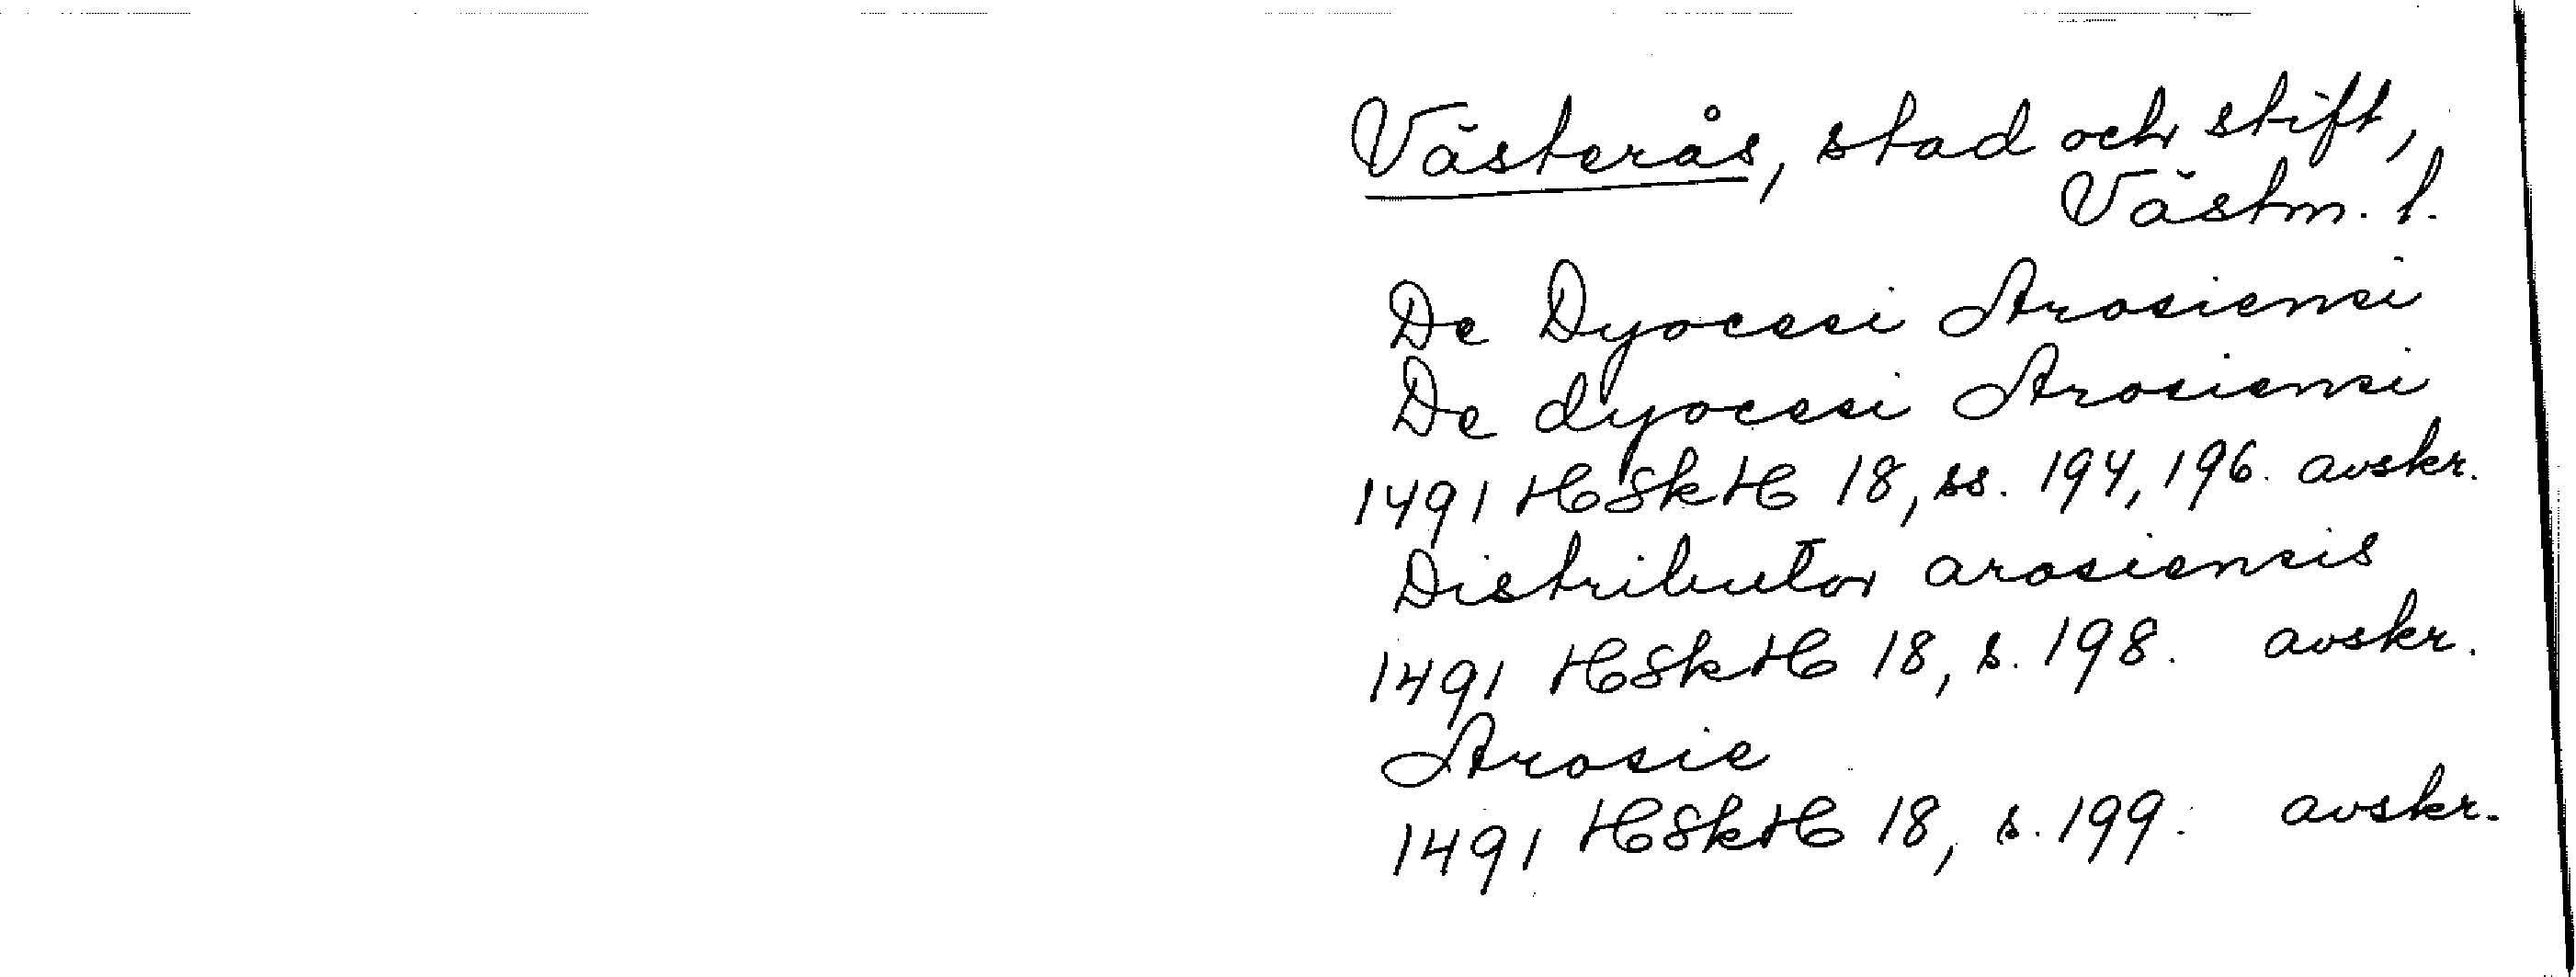 Västerås, stad och stift,
Västm. l.
De Dyocesi Arosiensi
De dyocesi Arosiensi
1491 HSkH 18, ss. 194, 196. avskr.
Distributor arosiensis
1491 HSkH 18, s. 198. avskr.
Arosie
1491 HSkH 18, s. 199. avskr.